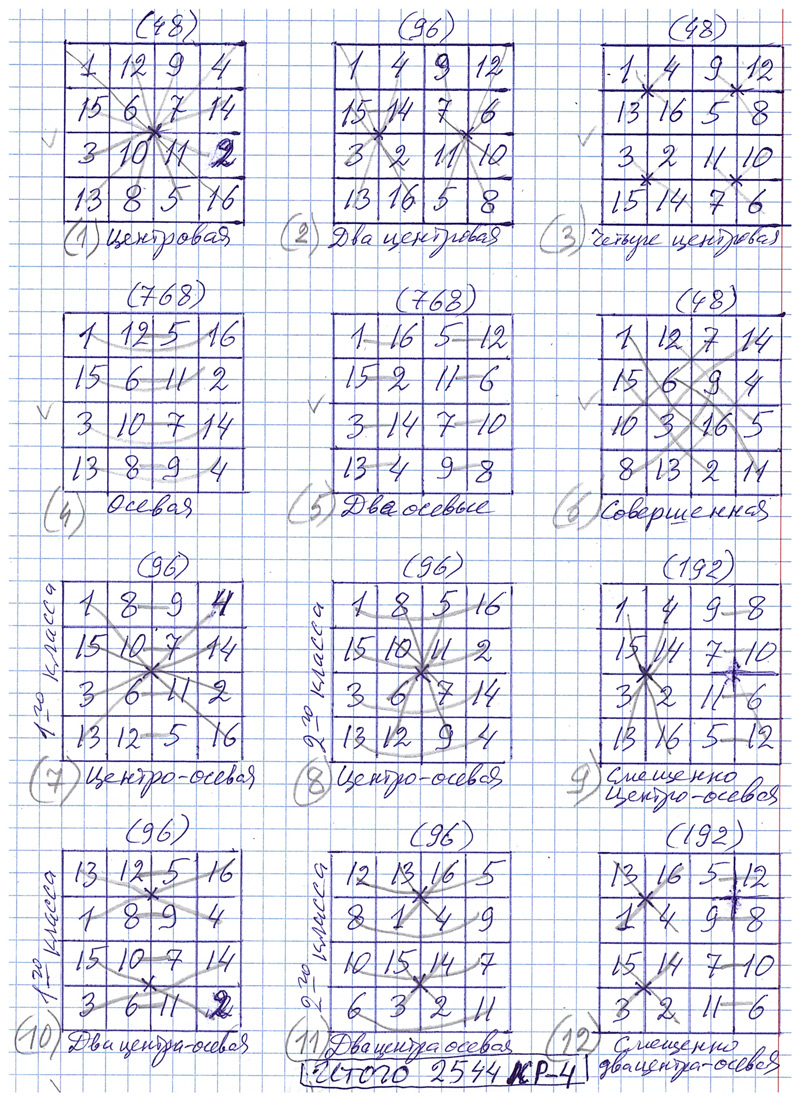 (48) (96) (48)
1 12 9 4 1 4 9 12 1 4 9 12
15 6 7 14 15 14 7 6 13 16 5 8
3 10 11 2 3 2 11 10 3 2 11 10
13 8 5 16 13 16 5 8 15 14 7 6
(1) Центровая (2) Два центровая (3) Четыре центровая
(768) (768) (48)
1 12 5 16 1 16 5 12 1 12 7 14
15 6 11 2 15 2 11 6 15 6 9 4
3 10 7 14 3 14 7 10 10 3 16 5
13 8 9 4 13 4 9 8 8 13 2 11
(4) Осевая (5) Две осевые (6) Совершенная
(96) (96) (192)
1 8 9 4 1 8 5 16 1 4 9 8
15 10 7 14 15 10 11 2 15 14 7 10
3 6 11 2 3 6 7 14 3 2 11 6
13 12 5 16 13 12 9 4 13 16 5 12
1го класса 2го класса
(7) Центро-осевая (8) Центро-осевая (9) Смещенно
Центро-осевая
(96) (96) (192)
13 12 5 16 12 13 16 5 13 16 5 12
1 8 9 4 8 1 4 9 1 4 9 8
15 10 7 14 10 15 14 7 15 14 7 10
3 6 11 2 6 3 2 11 3 2 11 6
1го класса 2го класса
(10) Двацентра-осевая (11) Двацентра осевая (12) Смещенно
двацентра-осевая
Итого 2544 КР-4